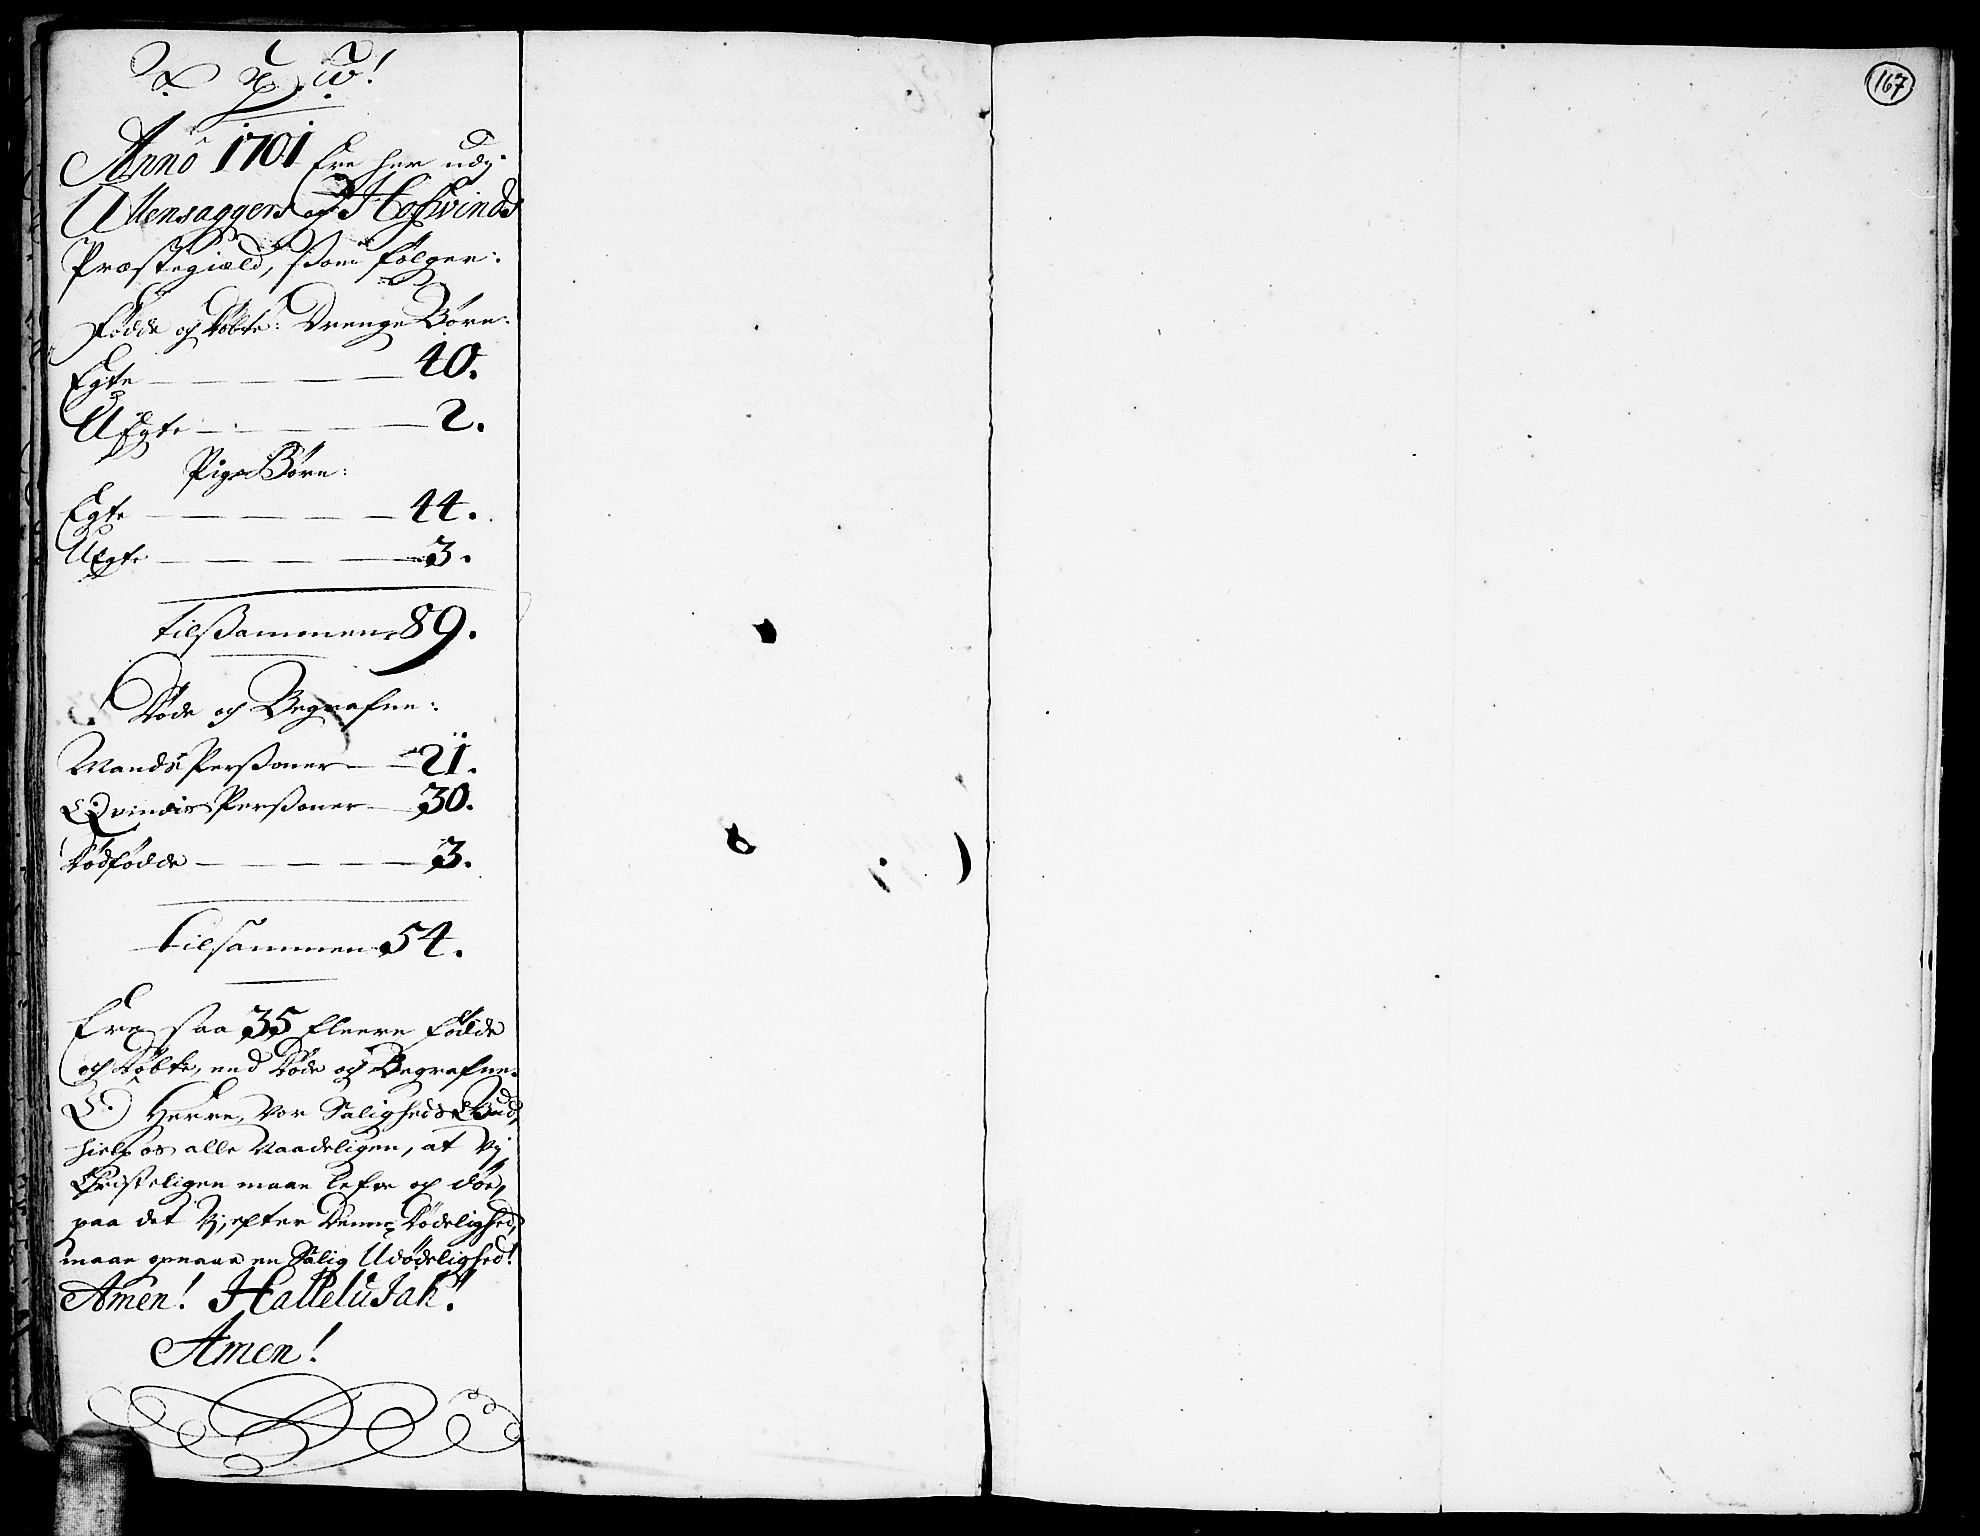 Anno 1701 Ere her udj
Ullensaggers og Hofwinds
Præstegiæld, ßom følger:
Fødde og Døbte: Drenge Børn:
Egte — 40.
UEgte — 2.
Pige Børn:
Egte — 44.
UEgte — 3.
tilßammen 89.
Døde og Begrafne:
Mands Perßoner — 21.
Qvindis Perßoner — 30.
Dødfødde — 3.
tilsammen 54.
Ere saa 35 fleere fødde
och Døbte, end Døde och Begrafne.
O Herre, vor Saligheds Gud,
hielp os alle Naadeligen, at vj
Christeligen maae lefve og døe,
paa det vj, efter denne Dødelighed,
maae opnaae en Salig Udødelighed!
Amen! HalleluJah!
Amen!
167